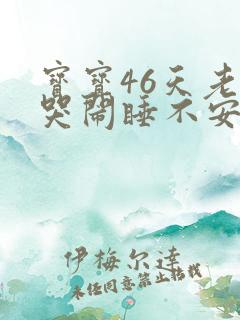 寶寶46天老
哭鬧睡不安
伊梅尔達
未经同意禁止转载